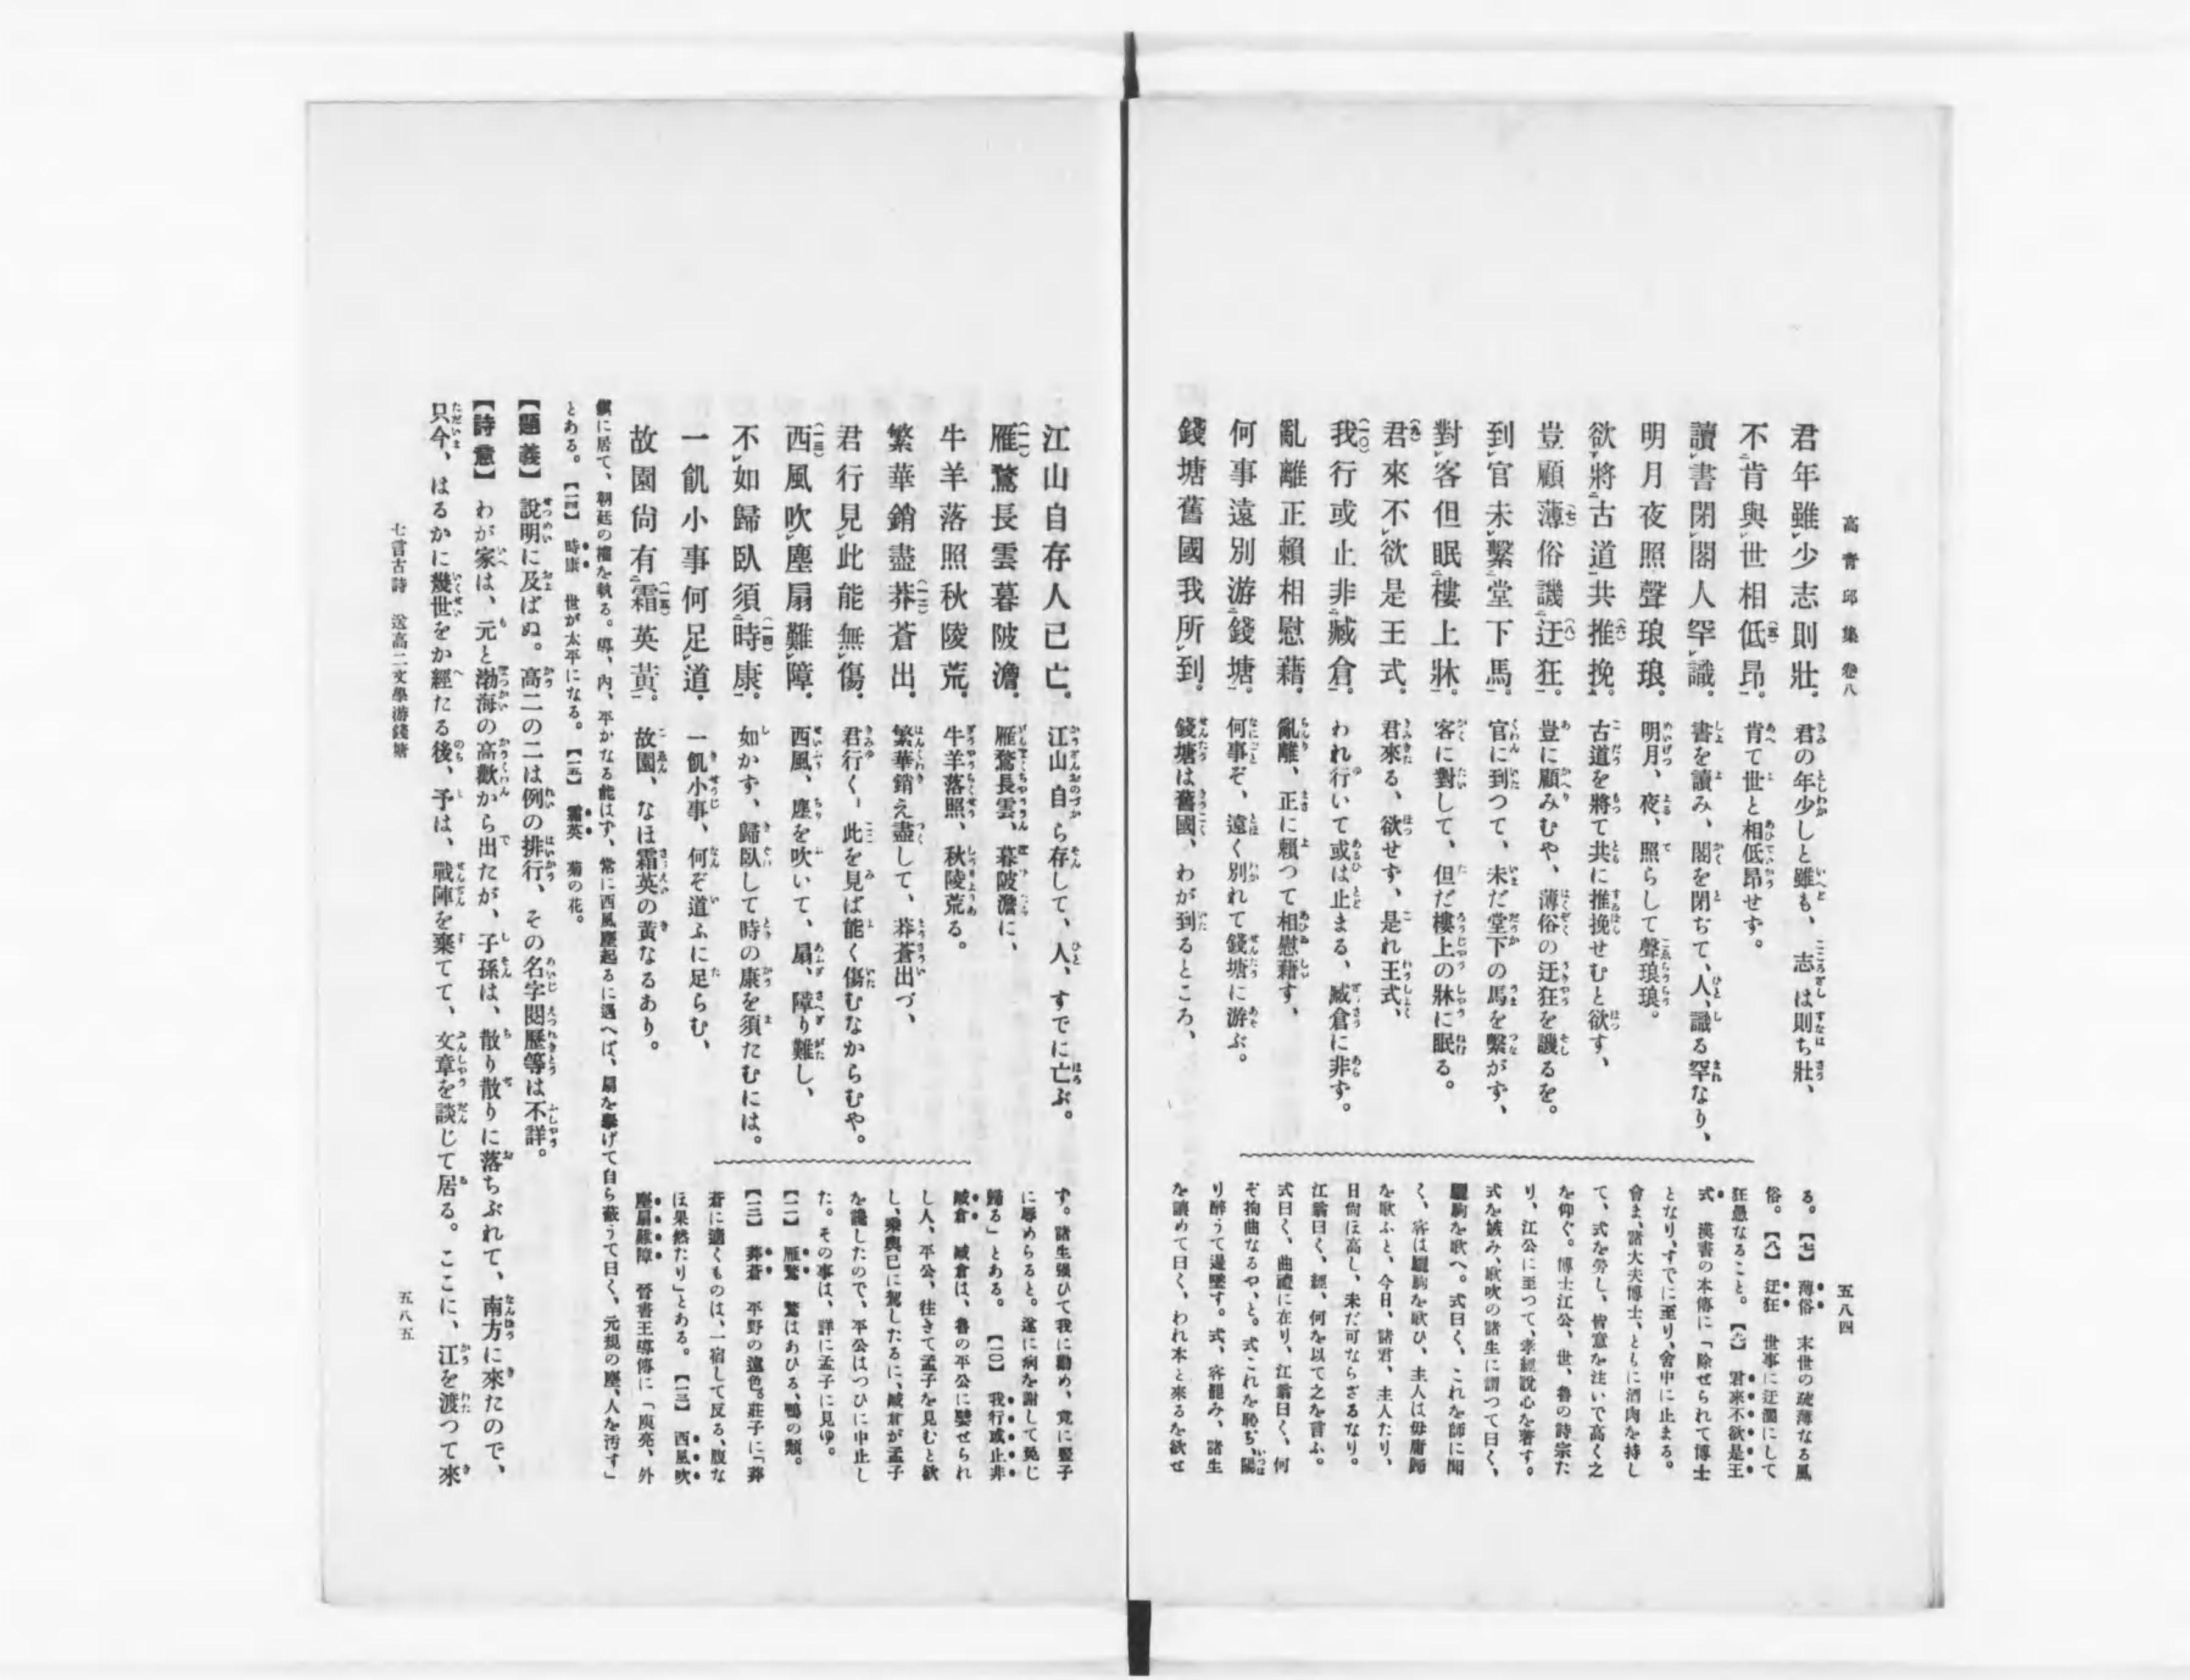 高青邱集 卷八
五八四
君年雖少志則壯。
不肯與世相低昂。
讀書閉閣人罕識。
明月夜照聲琅琅。
欲將古道共推挽。
豈顧薄俗譏迂狂。
到官未繫堂下馬。
對客但眠樓上牀。
君來不欲是王式。
我行或止非臧倉。
亂離正賴相慰藉。
何事遠別游錢塘。
錢塘舊國我所到。
君の年少しと雖も、志は則ち壯、
肯て世と相低昂せず。
書を讀み、閣を閉ぢて、人、識る罕なり、
明月、夜、照らして聲琅琅。
古道を將て共に推挽せむと欲す、
豈に顧みむや、薄俗の迂狂を譏るを。
官に到つて、未だ堂下の馬を繫がず、
客に對して、但だ樓上の牀に眠る。
君來る、欲せず、是れ王式、
われ行いて或は止まる、臧倉に非ず。
亂離、正に賴つて相慰藉す、
何事ぞ、遠く別れて錢塘に游ぶ。
錢塘は舊國、わが到るところ、
る。【七】薄俗 末世の疏薄なる風
俗。【八】迂狂 世事に迂濶にして
狂愚なること。【九】君來不欲是王
式 漢書の本傳に「除せられて博士
となり、すでに至り、舍中に止まる。
會ま、諸大夫博士、ともに酒肉を持し
て、式を勞し、皆意を注いで高く之
を仰ぐ。博士江公、世、魯の詩宗た
り、江公に至つて、孝經說心を著す。
式を嫉み、歌吹の諸生に謂つて曰く、
驪駒を歌へ。式曰く、これを師に聞
く、客は驪駒を歌ひ、主人は毋庸歸
を歌ふと、今日、諸君、主人たり、
日尙ほ高し、未だ可ならざるなり。
江翁曰く、經、何を以て之を言ふ。
式曰く、曲禮に在り、江翁曰く、何
ぞ拘曲なるや、と。式これを恥ぢ、陽
り醉うて逿墜す。式、客罷み、諸生
を讓めて曰く、われ本と來るを欲せ
江山自存人已亡。
雁鶩長雲暮陂澹。
牛羊落照秋陵荒。
繁華銷盡莽蒼出。
君行見此能無傷。
西風吹塵扇難障。
不如歸臥須時康。
一飢小事何足道。
故園尙有霜英黃。
江山自ら存して、人、すでに亡ぶ。
雁鶩長雲、暮陂澹に、
牛羊落照、秋陵荒る。
繁華銷え盡して、莽蒼出づ、
君行く、此を見ば能く傷むなからむや。
西風、塵を吹いて、扇、障り難し、
如かず、歸臥して時の康を須たむには。
一飢小事、何ぞ道ふに足らむ、
故園、なほ霜英の黃なるあり。
ず。諸生强ひて我に勸め、竟に豎子
に辱めらると。遂に病を謝して免じ
歸る」とある。【一〇】我行或止非
臧倉 臧倉は、魯の平公に嬖せられ
し人、平公、往きて孟子を見むと欲
し、乘輿已に駕したるに、臧倉が孟子
を讒したので、平公はつひに中止し
た。その事は、詳に孟子に見ゆ。
【一一】雁鶩 鶩はあひる、鴨の類。
【一二】莽蒼 平野の遠色。莊子に「莽
蒼に適くものは、一宿して反る、腹な
ほ果然たり」とある。【一三】西風吹
塵扇難障 晉書王導傳に「庾亮、外
鎭に居て、朝廷の權を執る。導、內、平かなる能はず、常に西風塵起るに遇へば、扇を擧げて自ら蔽うて曰く、元規の塵、人を汚す」
とある。【一四】時康 世が太平になる。【一五】霜英 菊の花。
【題義】 說明に及ばぬ。高二の二は例の排行、その名字閱歷等は不詳。
【詩意】 わが家は、元と渤海の高歡から出たが、子孫は、散り散りに落ちぶれて、南方に來たので、
只今、はるかに幾世をか經たる後、予は、戰陣を棄てて、文章を談じて居る。ここに、江を渡つて來
七言古詩 送高二文學游錢塘
五八五